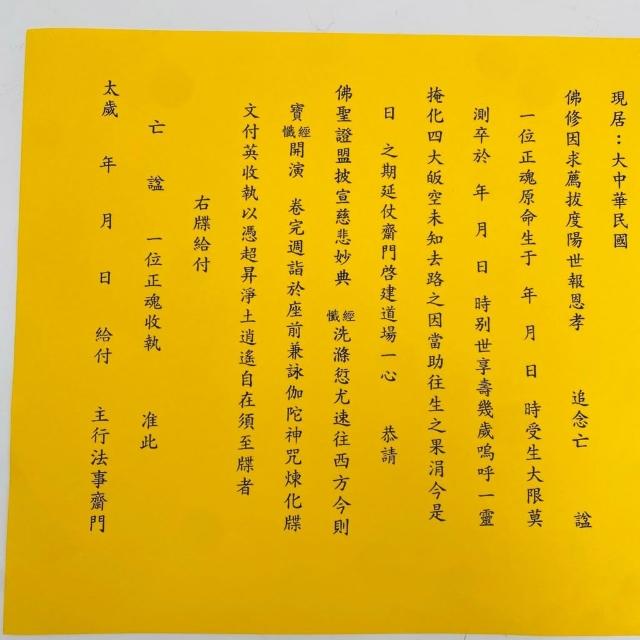 現居：大中華民國
佛修因求薦拔度陽世報恩孝 追念亡 諡
一位正魂原命生于 年 月 日 時受生大限莫
測卒於 年 月 日 時別世享壽幾歲嗚呼一靈
掩化四大皈空未知去路之因當助往生之果涓今是
日 之期延仗齋門啓建道場一心 恭請
佛聖證盟披宣慈悲妙典 經懺洗滌愆尤速往西方今則
寶經懺開演 卷完週詣於座前兼詠伽陀神咒煉化牒
文付英收執以憑超昇淨土逍遙自在須至牒者
右牒給付
亡 諡 一位正魂收執 准此
太歲 年 月 日 給付 主行法事齋門